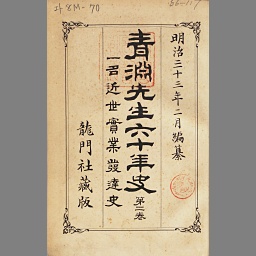 明治三十三年二月編纂
青淵先生六十年史 第二卷
一名近世實業發達史
龍門社藏版